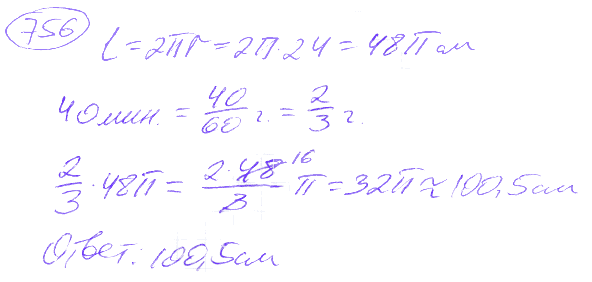 756
L = 2πr = 2π·24 = 48π см
40 мин. = 40/60 г. = 2/3 г.
2/3 · 48π = 2·48/3 16 π = 32π ≈ 100,5 см
Ответ: 100,5 см